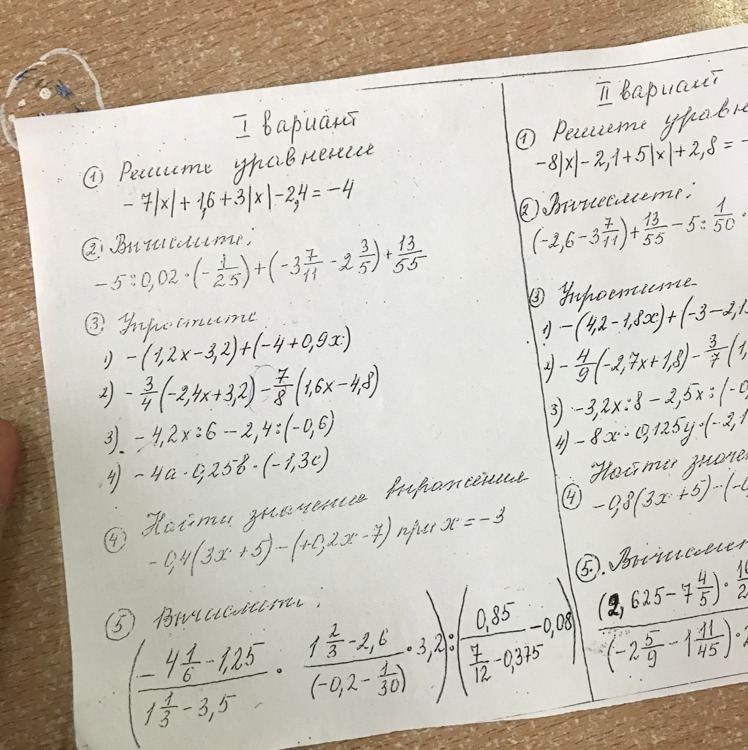 I вариант
① Решите уравнение
-7|x|+1,6+3|x|-2,4=-4
② Вычислите:
-5:0,02·(-1/25)+(-3 7/11-2 3/5)+13/55
③ Упростите
1) -(1,2x-3,2)+(-4+0,9x)
2) -3/4(-2,4x+3,2)-7/8(1,6x-4,8)
3) -4,2x:6-2,4:(-0,6)
4) -4a·0,25b·(-1,3c)
④ Найти значение выражения
-0,4(3x+5)-(+0,2x-7) при x=-3
⑤ Вычислить:
((-4 1/6-1,25)/(1 1/3-3,5)·(1 2/3-2,6)/(-0,2-1/30)·3,2):(0,85/(7/12-0,375)-0,08)
II вариант
① Решите
-8|x|-2,1+5|x|+2,8=-
② Вычислите:
(-2,6-3 7/11)+13/55-5:1/50·
③ Упростите
1) -(4,2-1,8x)+(-3-2,1
2) -4/9(-2,7x+1,8)-3/7(1,
3) -3,2x:8-2,5x:(-0,
4) -8x·0,125y·(-2,1
④ Найти
-0,8(3x+5)-(-0
⑤.
(2,625-7 4/5)·
(-2 5/9-1 11/45)·